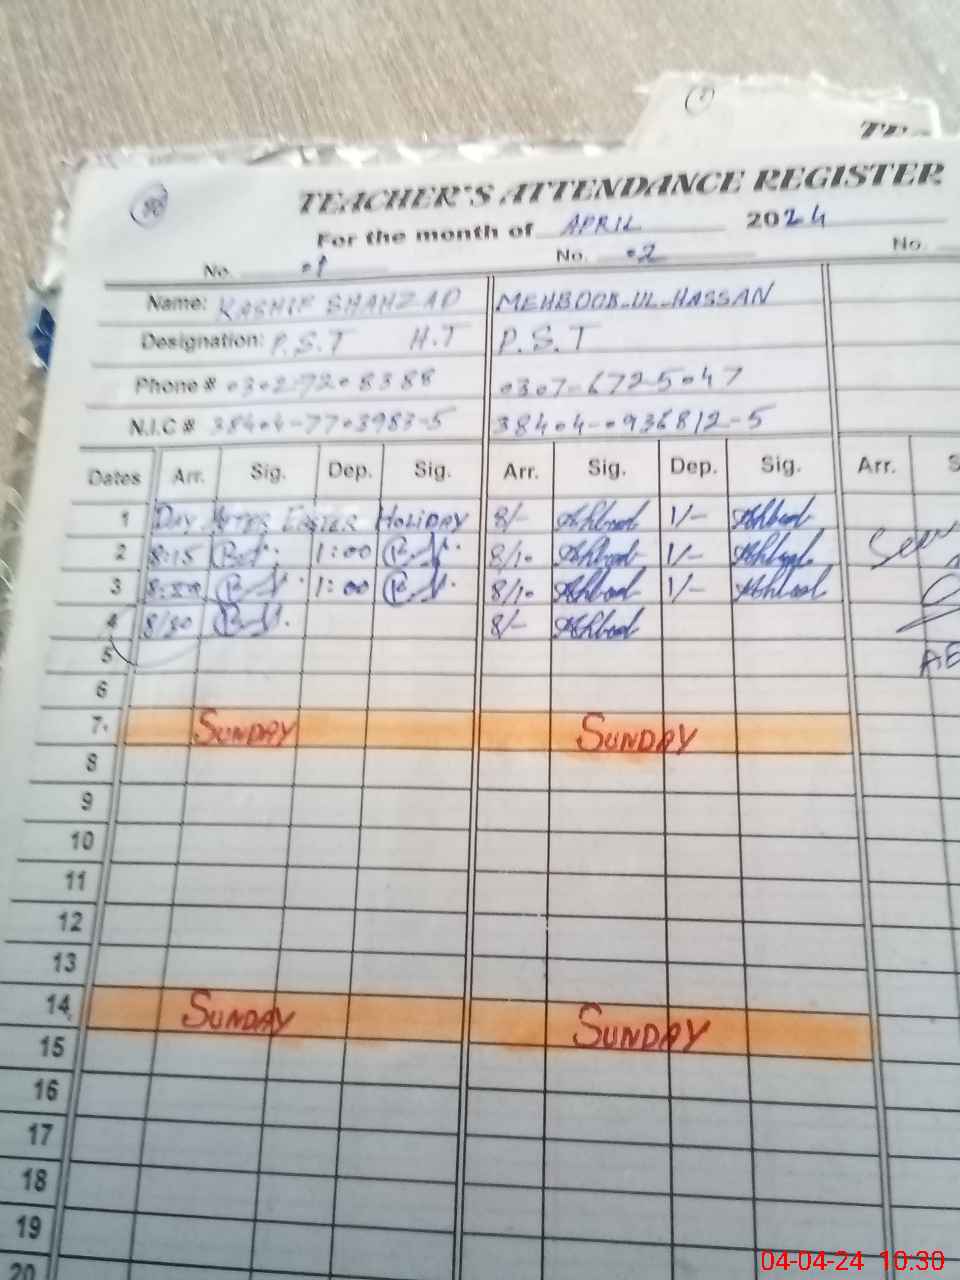 TEACHER'S ATTENDANCE REGISTER
For the month of APRIL 2024
No. 01 No. 02 No.
Name: KASHIF SHAHZAD MEHBOOB-UL-HASSAN
Designation: P.S.T H.T P.S.T
Phone # 0302-7208388 0307-6725047
N.I.C # 38404-7703983-5 38404-0936812-5
Dates Arr. Sig. Dep. Sig. Arr. Sig. Dep. Sig. Arr.
1 DAY AFTER EASTER HOLIDAY 8/- 1/-
2 8:15 1:00 8/10 1/-
3 1:00 8/10 1/-
4 8/30 8/-
5
6
7 SUNDAY SUNDAY
8
9
10
11
12
13
14 SUNDAY SUNDAY
15
16
17
18
19
20
04-04-24 10.30